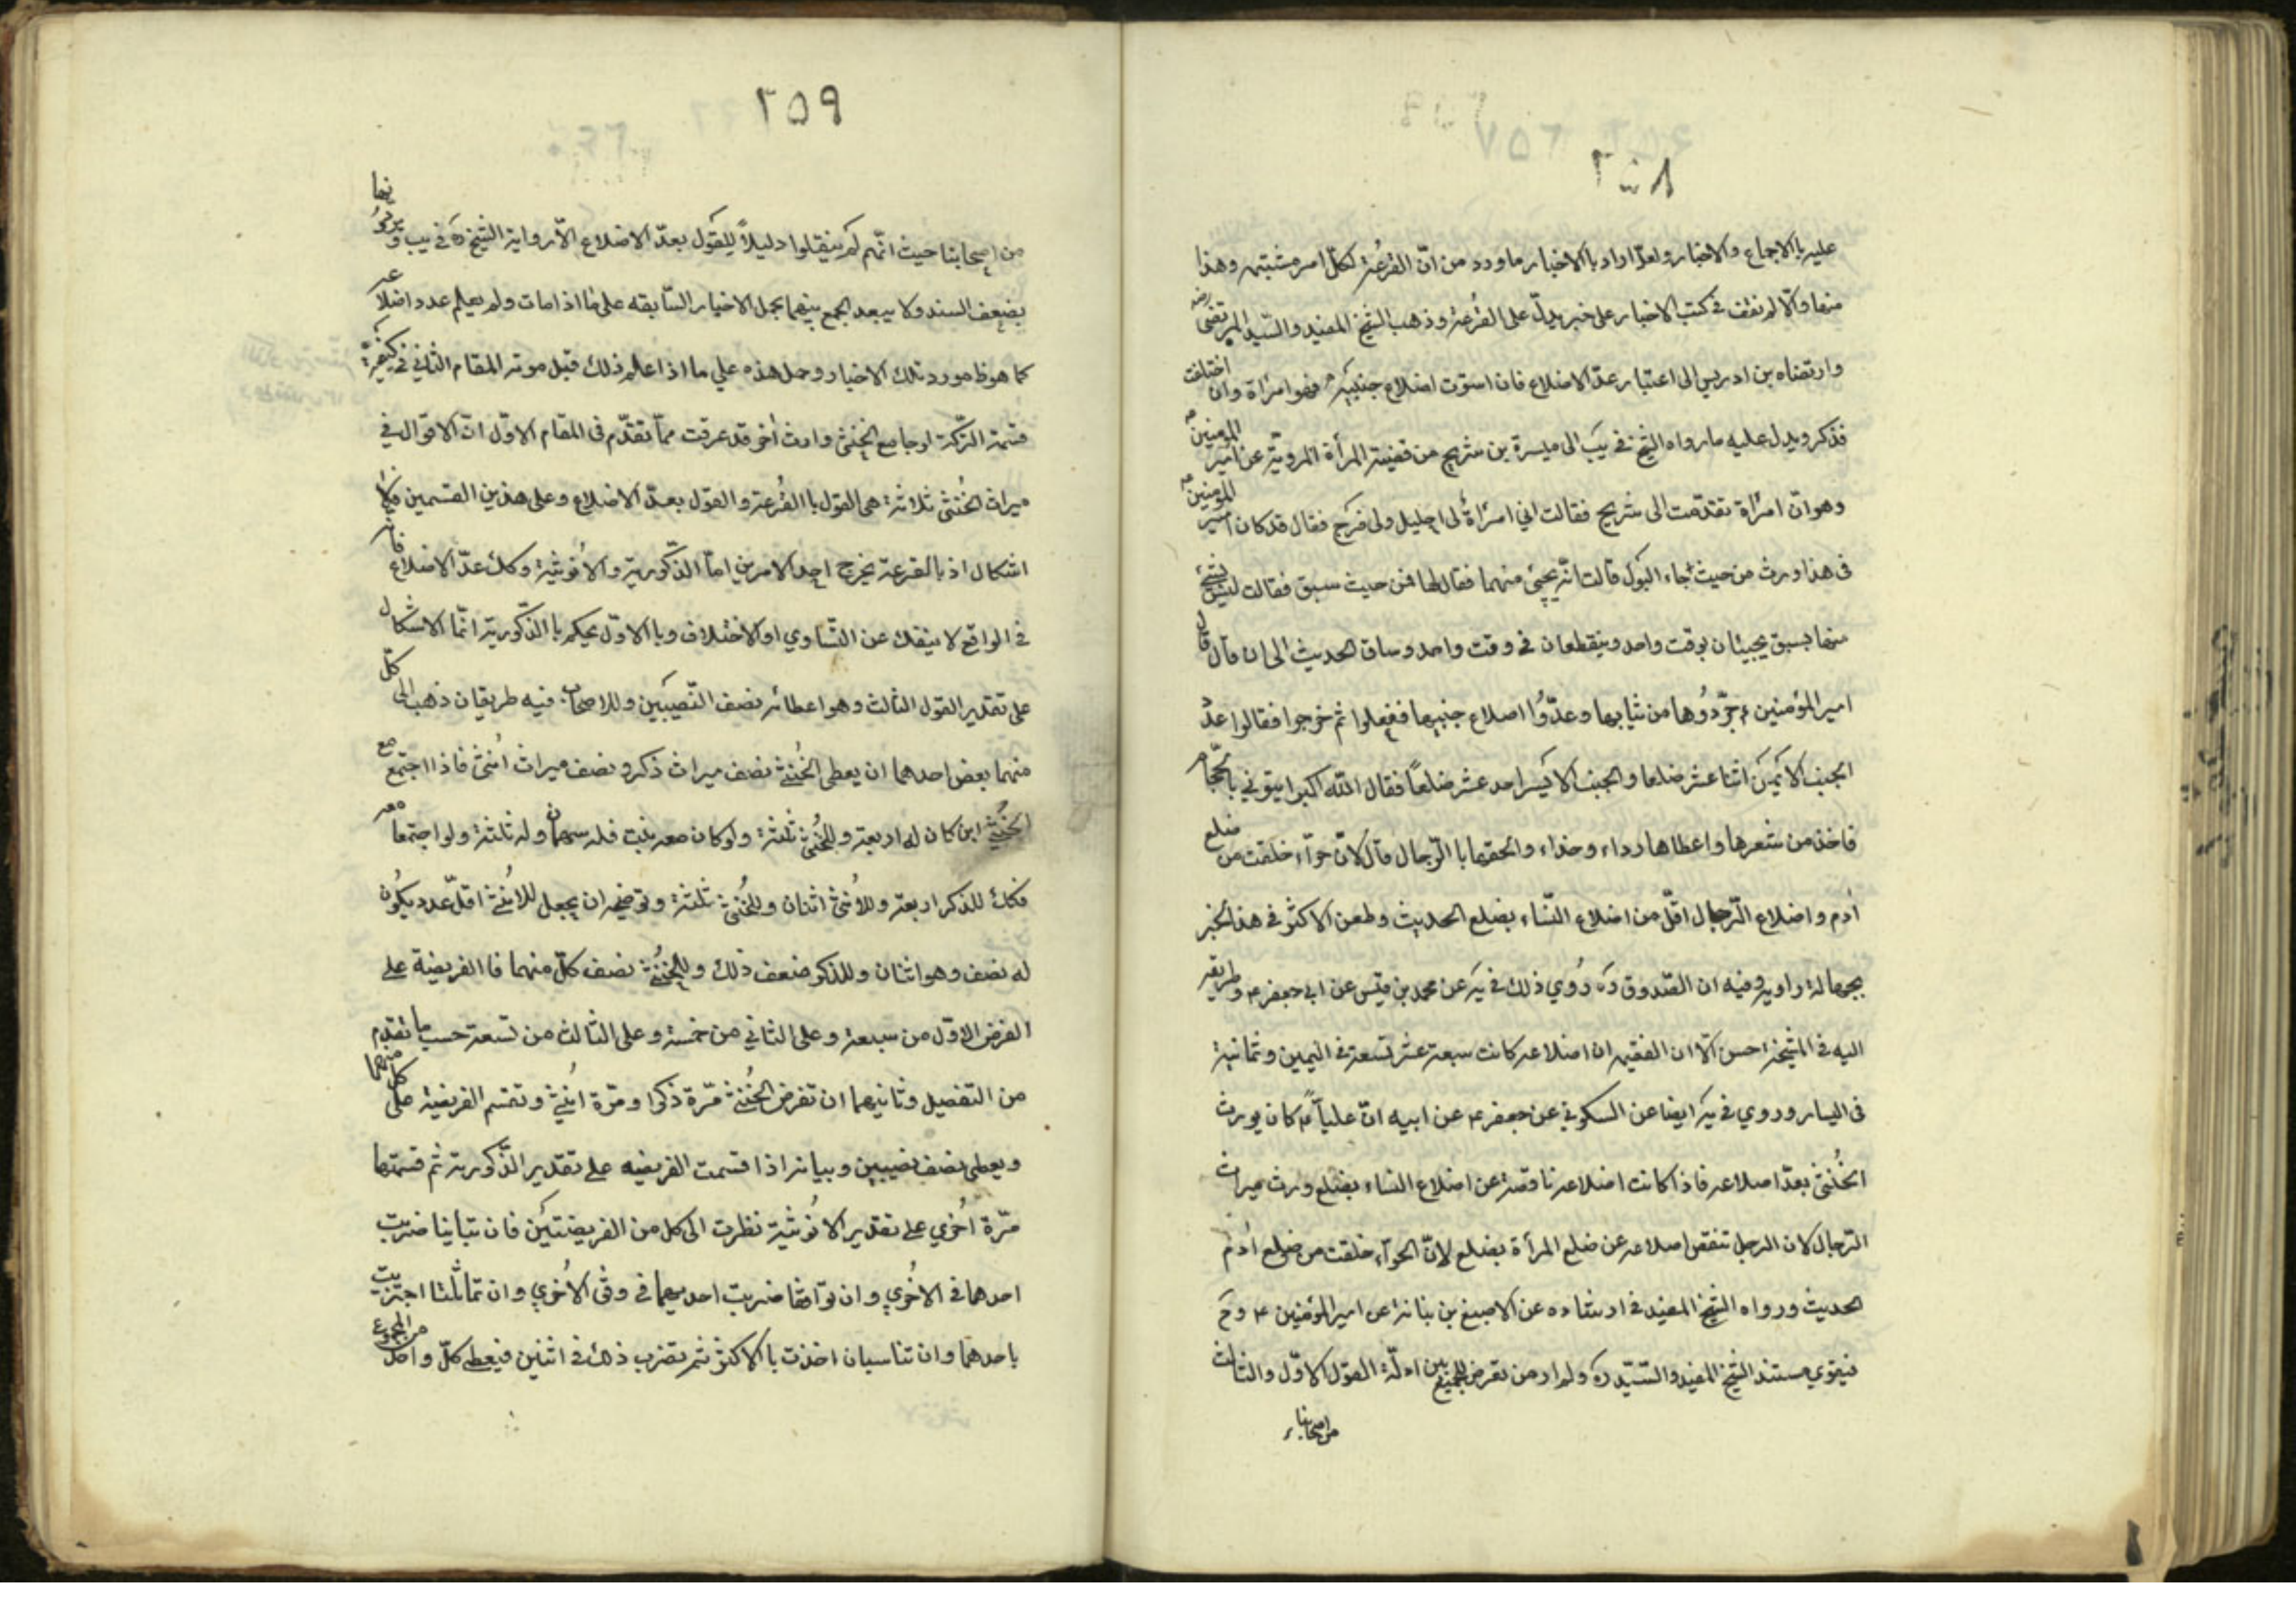 ٢٥٨
عليه باالاجماع والاخبار ولعلّ اراد باالاخبار ما ورد من انّ القُرعة لكلّ امر مشتبه وهذا
منها والّا لم نقف في كتب الاخبار على خبر يدلّ على القُرعة وذهب الشيخ المفيد والسّيد المرتضى
وارتضاه بن ادريس الى اعتبار عدّ الاضلاع فان استوت اضلاع جنبيه فهو امرأة وان اختلفت
فذكر ويدل عليه ما رواه الشيخ في يَب الى ميسرة بن شريح من قضية المرأة المروية عن امير المومنين
وهو انّ امرأة تقدّمت الى شريح فقالت اني امرأة لى احليل ولى فرج فقال قد كان امير المومنين
فى هذا ورث من حيث جاء البول قالت انّه يجيئ منهما فقال لها فمن حيث سبق فقالت ليس شيئ
منهما يسبق يجيئان بوقت واحد وينقطعان في وقت واحد وساق الحديث الى ان قال قال
امير المؤمنين ع جرّدُوها من ثيابها وعدّوُا اضلاع جنبيها ففعلوا ثم خرجوا فقالوا عدد
الجنب الايمن اثنا عشر ضلعا والجنب الايسر احد عشر ضلعاً فقال اللّه اكبر ايتوني بالحجّام
فاخذ من شعرها واعطاها رداء وحذاء والحقها باالرّجال قال لانّ حوّاء خلقت من ضلع
اٰدم واضلاع الرّجال اقلّ من اضلاع النّساء بضلع الحديث وطعن الاكثر في هذا الخبر
بجهالة راويه وفيه ان الصّدوق ره رُوي ذلك في يَه عن محمد بن قيس عن ابي جعفر ع وطريقه
اليه فى المشيخة احسن الّا ان الفقيه ان اضلاعه كانت سبعة عشر تسعة فى اليمين وثمانية
فى اليسار وروي في يَه ايضا عن السكوني عن جعفر ع عن ابيه انّ علياً ع كان يورث
الخُنثى بعدّ اضلاعه فاذا كانت اضلاعه ناقصة عن اضلاع النساء بضلع ورث ميراث
الرّجال لان الرجل تنقص اضلاعه عن ضلع المرأة بضلع لانّ الحوّاء خلقت من ضلع اٰدم
الحديث ورواه الشيخ المفيد في ارشاده عن الاصبغ بن نباتة عن امير المؤمنين ع وح
فيقوي مستند الشيخ المفيد والسّيّد ره ولم ار من تعرض للجمع بين ادلّة القول الاوّل والثالث
من اصحابنا
٢٥٩
من اصحابنا حيث انّهم لم ينقلوا دليلاً للقول بعدّ الاضلاع الّا رواية الشيخ ره في يب و يرمونها
بضعف السند ولا يبعد الجمع بينهما بحمل الاخبار السّابقه على ما اذا مات ولم يعلم عدد اضلاعه
كما هو ظ مورد تلك الاخبار وحمل هذه علي ما اذا علم ذلك قبل موته المقام الثاني في كيفية
قسمة التركة لو جامع الخنثى وارث اٰخر قد عرفت ممّا تقدّم فى المقام الاوّل انّ الاقوال في
ميراث الخُنثى ثلاثة هى القول باالقُرعة والقول بعدّ الاضلاع وعلى هذين القسمين فلا
اشكال اذ باالقرعة يخرج احد الامرين امّا الذّكورية والاُنوثية وكك عدّ الاضلاع فانه
في الواقع لا ينفك عن التّساوي او الاختلاف وبا الاوّل يحكم باالذّكورية انّما الاشكال
على تقدير القول الثالث وهو اعطائه نصف النّصيبين وللاصحاب فيه طريقان ذهب الى كلّ
منهما بعض احدهما ان يعطى الخُنثى نصف ميراث ذكر ونصف ميراث اُنثى فاذا اجتمع مع
الخنثى ابن كان له اربعة وللخُنثى ثلثة ولو كان معه بنت فله سهمان وله ثلثة ولو اجتمعا معه
فكك للذكر اربعة وللاُنثى اثنان وللخُنثى ثلثة وتوضيحه ان يجعل للاُنثى اقلّ عدد يكون
له نصف وهو اثنان وللذكر ضعف ذلك وللخُنثى نصف كلّ منهما فالفريضة على
الفرض الاوّل من سبعة وعلى الثاني من خمسة وعلى الثالث من تسعة حسب ما تقدم
من التفصيل وثانيهما ان تفرض الخُنثى مّرة ذكرا ومرّة اُنثى وتقسم الفريضة على كل منهما
ويعطى نصف نصيبين وبيانه اذا قسمت الفريضه على تقدير الذّكورية ثم قسمتها
مرّة اُخري على تقدير الانُوثية نظرت الى كل من الفريضتين فان تباينا ضربت
احدهما في الاخري وان توافقا ضربت احديهما في وفق الاُخري وان تماثلتا اجتزيت
باحدهما وان تناسبان اخذت باالاكثر ثم تضرب ذلك في اثنين فيعطى كلّ واحد من المجموع